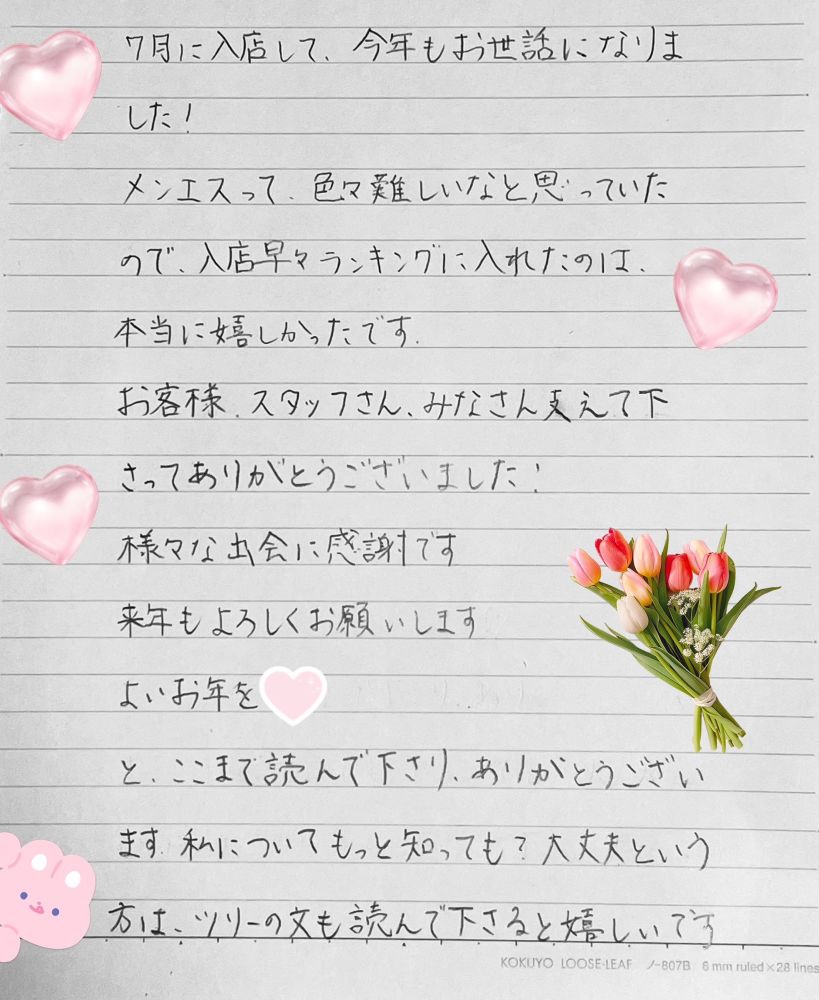 7月に入店して、今年もお世話になりま
した!
メンエスって、色々難しいなと思っていた
ので、入店早々ランキングに入れたのは、
本当に嬉しかったです.
お客様、スタッフさん、みなさん支えて下
さってありがとうございました!
様々な出会に感謝です
来年もよろしくお願いします
よいお年を
と、ここまで読んで下さり、ありがとうござい
ます. 私についてもっと知っても?大丈夫という
方は、ツリーの文も読んで下さると嬉しいです
KOKUYO LOOSE-LEAF ノ-807B 6 mm ruled×28 lines